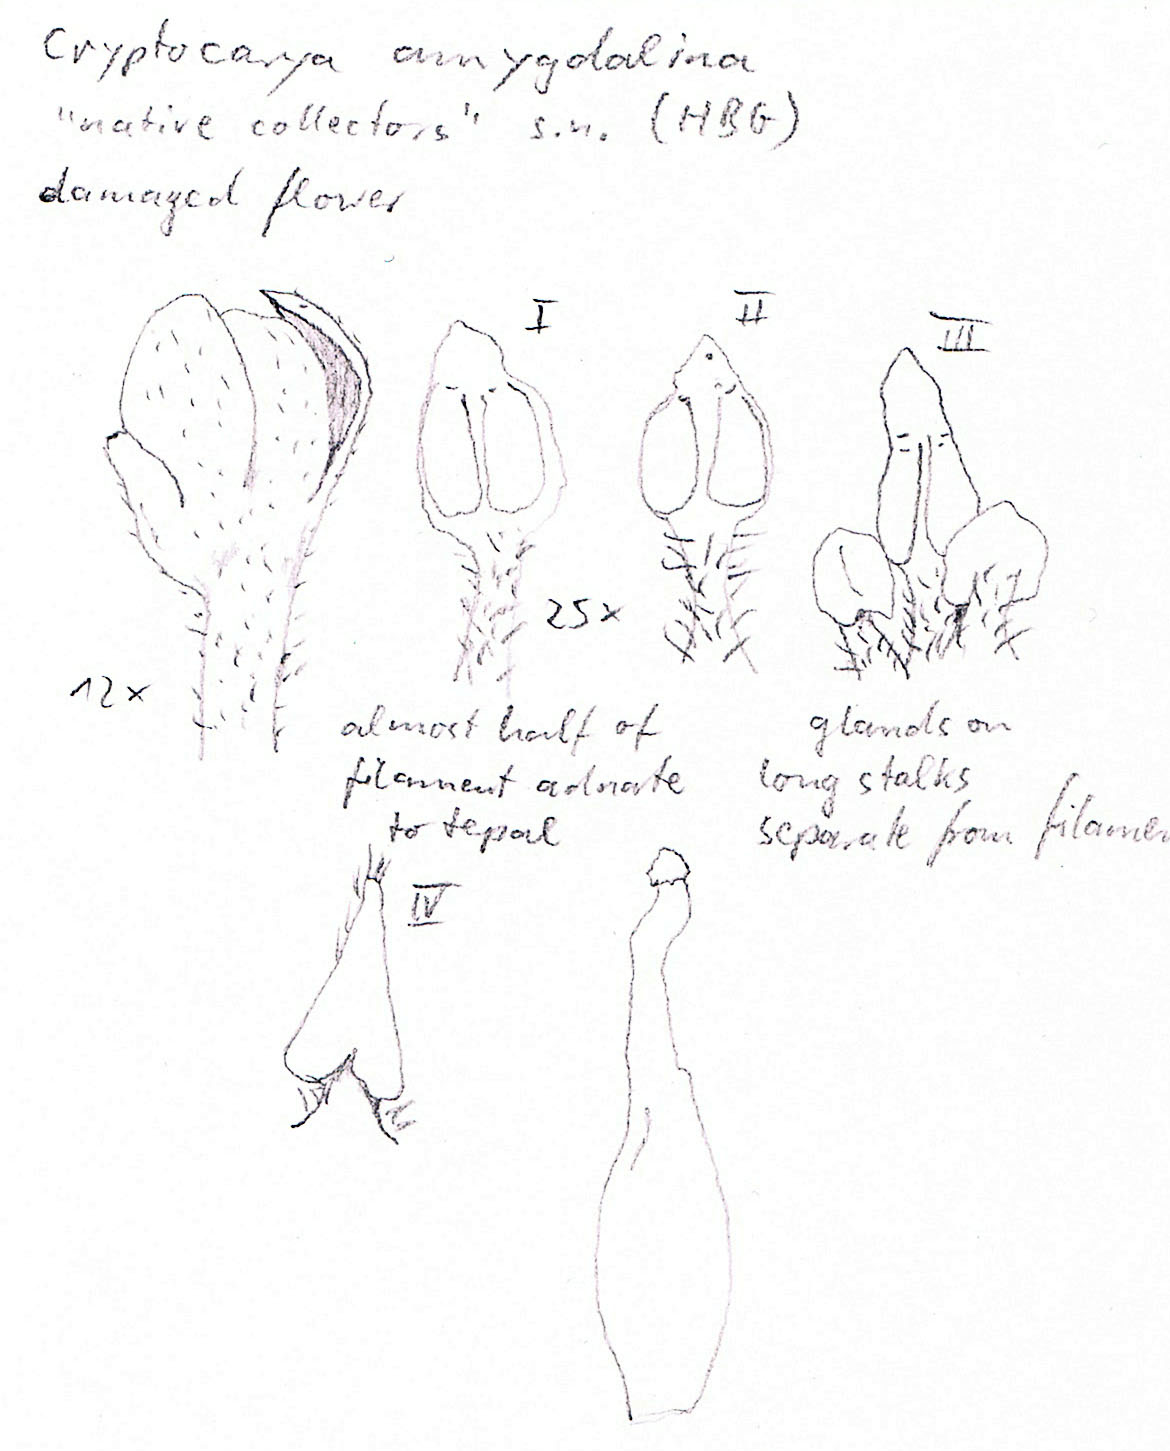 Cryptocarya amygdalina
"native collectors" s.n. (HBG)
damaged flower
I
II
III
25x
12x
almost half of
filament adnate
to tepal
glands on
long stalks
separate from filamen
IV